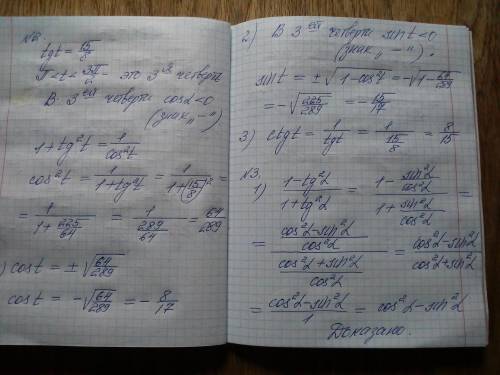 №2.
tgt = 15/8
π < t < 3π/2 - это 3ᵃ четверть
В 3ᵉй четверти cosα < 0
(знак „-")
1 + tg²t = 1/cos²t
cos²t = 1/(1+tg²t) = 1/(1+(15/8)²) =
= 1/(1+225/64) = 1/(289/64) = 64/289
) cost = ±√(64/289)
cost = -√(64/289) = - 8/17
2) В 3ᵉй четверти sint < 0
(знак „-").
sint = ±√(1-cos²t) = -√(1-64/289) =
= -√(225/289) = -15/17
3) ctgt = 1/tgt = 1/(15/8) = 8/15
№3.
1) (1-tg²α)/(1+tg²α) = (1 - sin²α/cos²α)/(1 + sin²α/cos²α) =
= ((cos²α - sin²α)/cos²α)/((cos²α + sin²α)/cos²α) = (cos²α - sin²α)/(cos²α + sin²α) =
= (cos²α - sin²α)/1 = cos²α - sin²α
Доказано.